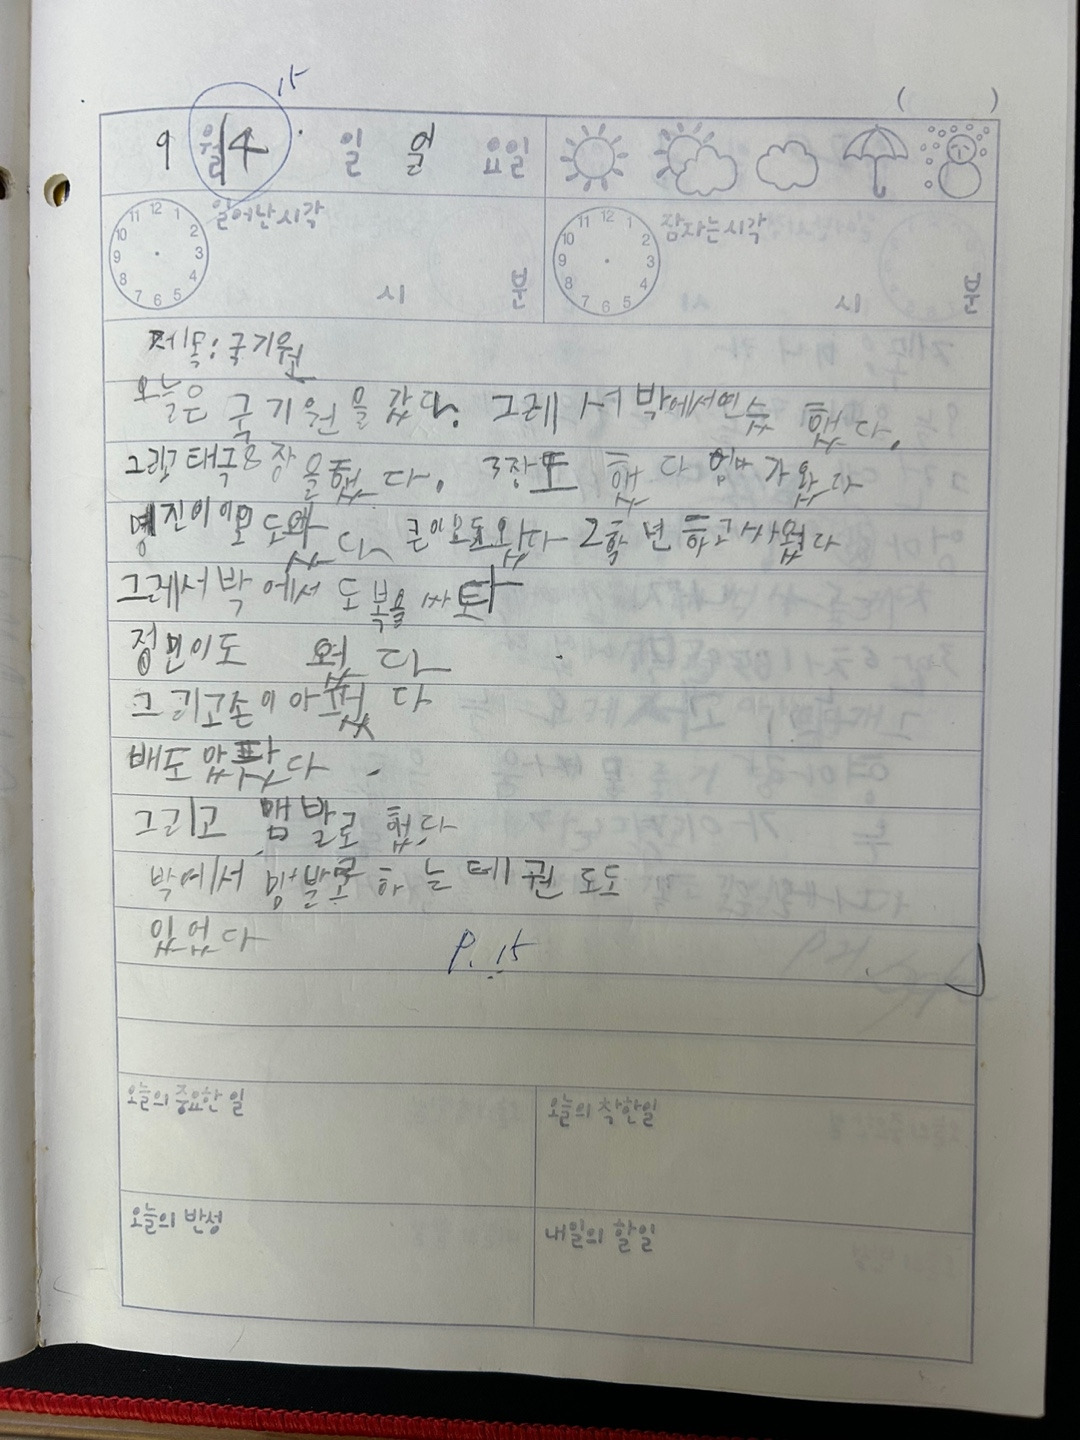 15
( )
9 월 14 일 일 요일
12 1 2 3 4 5 6 7 8 9 10 11
일어난시각
시 분
12 1 2 3 4 5 6 7 8 9 10 11
잠자는시각
시 분
제목: 국기원
오늘은 국기원을 갔다. 그레서 박에서연슶 했다.
그리고 태극8장을했다. 3장도 했다 엄마가왔다
도왔다 큰이모도왔다 2학년하고싸웠다
그레서박에서 도복을 싸
정민이도 왔다
그리고손이아
배도 았팟다
그리고 맴발로 했다
박에서 하는데 권도도
있었다
P. 15
오늘의 중요한 일
오늘의 착한일
오늘의 반성
내일의 할일